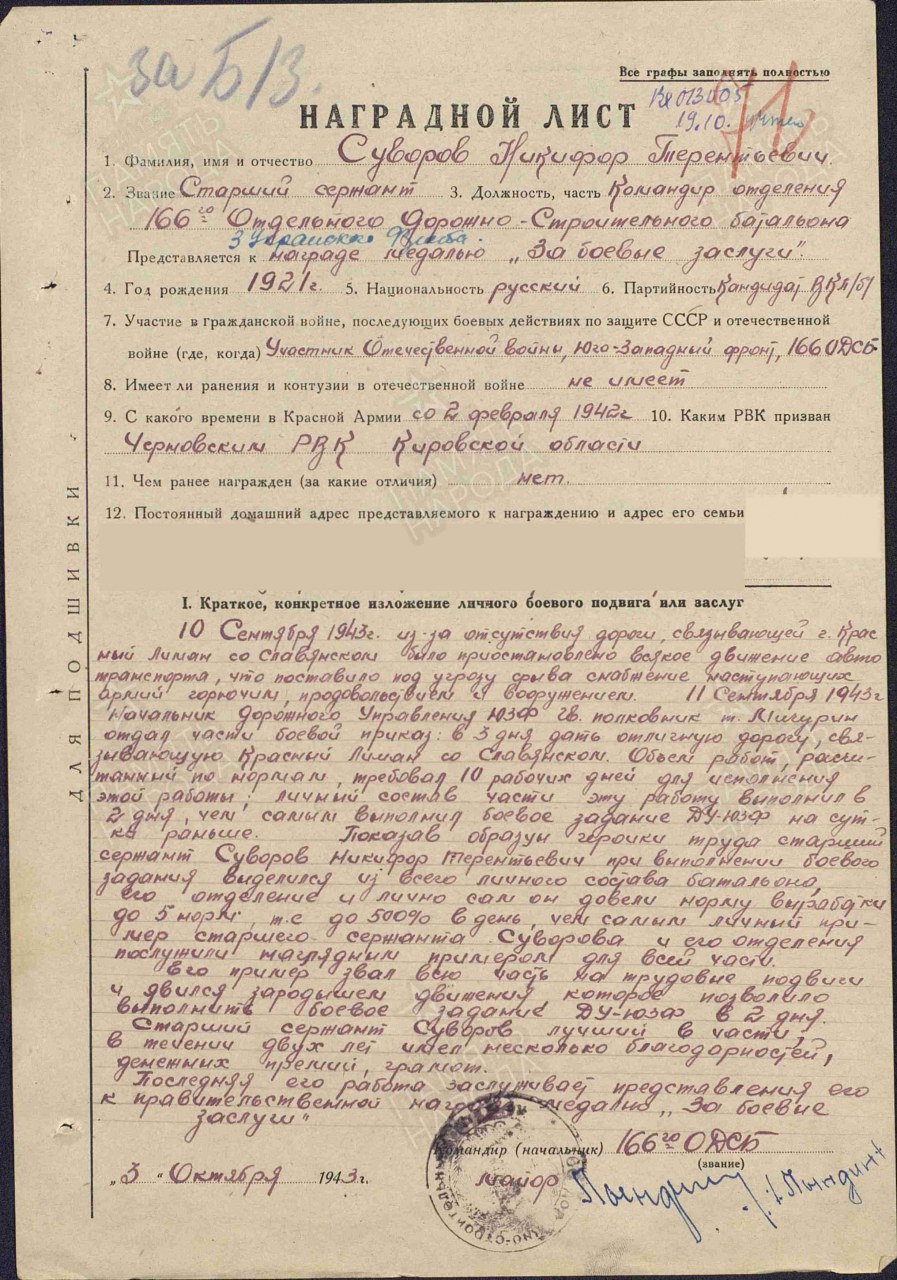 за Б/З.
Все графы заполнять полностью
НАГРАДНОЙ ЛИСТ
19.10.
1. Фамилия, имя и отчество Суворов Никифор Терентьевич.
2. Звание Старший сержант 3. Должность, часть Командир отделения
166го Отдельного Дорожно-Строительного батальона
3 Украинского Фронта.
Представляется к награде медалью „За боевые заслуги".
4. Год рождения 1921г. 5. Национальность русский 6. Партийность Кандидат ВКП/б/
7. Участие в гражданской войне, последующих боевых действиях по защите СССР и отечественной
войне (где, когда) Участник Отечественной войны, Юго-Западный фронт, 166 ОДСБ
8. Имеет ли ранения и контузии в отечественной войне не имеет
9. С какого времени в Красной Армии со 2 февраля 1942г 10. Каким РВК призван
Черновским РВК Кировской области
11. Чем ранее награжден (за какие отличия) нет.
12. Постоянный домашний адрес представляемого к награждению и адрес его семьи
ДЛЯ ПОДШИВКИ
I. Краткое, конкретное изложение личного боевого подвига или заслуг
10 Сентября 1943г. из-за отсутствия дороги, связывающей г. Крас
ный Лиман со Славянском было приостановлено всякое движение авто
транспорта, что поставило под угрозу срыва снабжение наступающих
армий горючим, продовольствием и вооружением. 11 Сентября 1943г
Начальник Дорожного Управления ЮЗФ Гв. полковник т. Мичурин
отдал части боевой приказ: в 3 дня дать отличную дорогу, свя-
зывающую Красный Лиман со Славянском. Объем работ, расчи-
танный по нормам, требовал 10 рабочих дней для исполнения
этой работы; личный состав части эту работу выполнил в
2 дня, чем самым выполнил боевое задание ДУ-ЮЗФ на сут-
ки раньше. Показав образцы героики труда старший
сержант Суворов Никифор Терентьевич при выполнении боевого
задания выделился из всего личного состава батальона,
его отделение и лично сам он довели норму выработки
до 5 норм, т.е до 500% в день, чем самым личный при-
мер старшего сержанта Суворова и его отделения
послужили наглядным примером для всей части.
Его пример звал всю часть на трудовые подвиги
и явился зародышем движения, которое позволило
выполнить боевое задание ДУ-ЮЗФ в 2 дня.
Старший сержант Суворов лучший в части,
в течении двух лет имел несколько благодарностей,
денежных премий, грамот.
Последняя его работа заслуживает представления его
к правительственной награде медалью „За боевые
заслуги"
Командир (начальник) 166го ОДСБ
(звание)
„3" Октября 1943г. майор